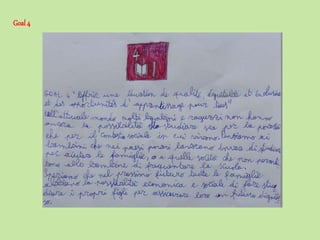 Goal 4
4
GOAL 4 "Offrir une éducation de qualité, équitable et inclusive
et des opportunités d'apprentissage pour tous"
nell'attuale mondo molte ragazzi e ragazze non hanno
ancora la possibilità di studiare sia per la povertà
che per il contesto sociale in cui vivono. Pensiamo ai
bambini che nei paesi poveri lavorano invece di studiare
per aiutare le famiglie, o a quelle volte che non
alle bambine di frequentare la scuola.
Speriamo che nel prossimo futuro tutte le famiglie
abbiano la possibilità economica e sociale di fare stu
diare i propri figli per assicurare loro un futuro miglio
re.